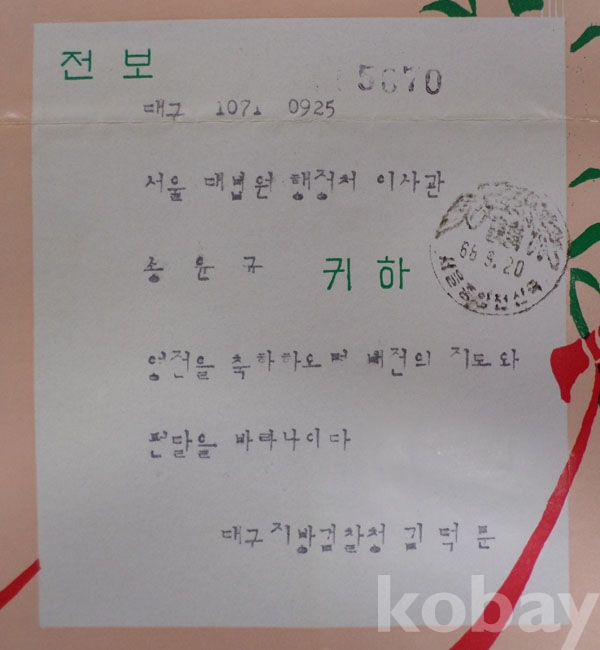 전보
5670
대구 1071 0925
서울 대법원 행정처 이사관
송윤규 귀하
66 5. 20
서울중앙전신국
영전을 축하하오며 배전의 지도와
편달을 바라나이다
대구지방검찰청 김덕문
kobay